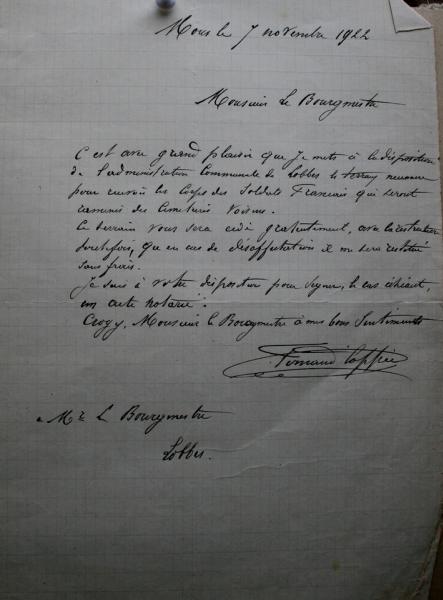 Mons le 7 novembre 1922
Monsieur Le Bourgmestre
C'est avec grand plaisir que Je mets à la disposition
de l'administration Communale de Lobbes le terrain nécessaire
pour recevoir les Corps des Soldats Francais qui seront
ramenés des Cimetières Voisins.
Ce terrain vous sera cédé gratuitement, avec la restriction
toutefois, que en cas de désaffectation il me sera restitué
sans frais.
Je suis à votre disposition pour signer, le cas échéant,
un acte notarié.
Croyez, Monsieur le Bourgmestre à mes bons Sentiments
Fernand
à Mr Le Bourgmestre
Lobbes.